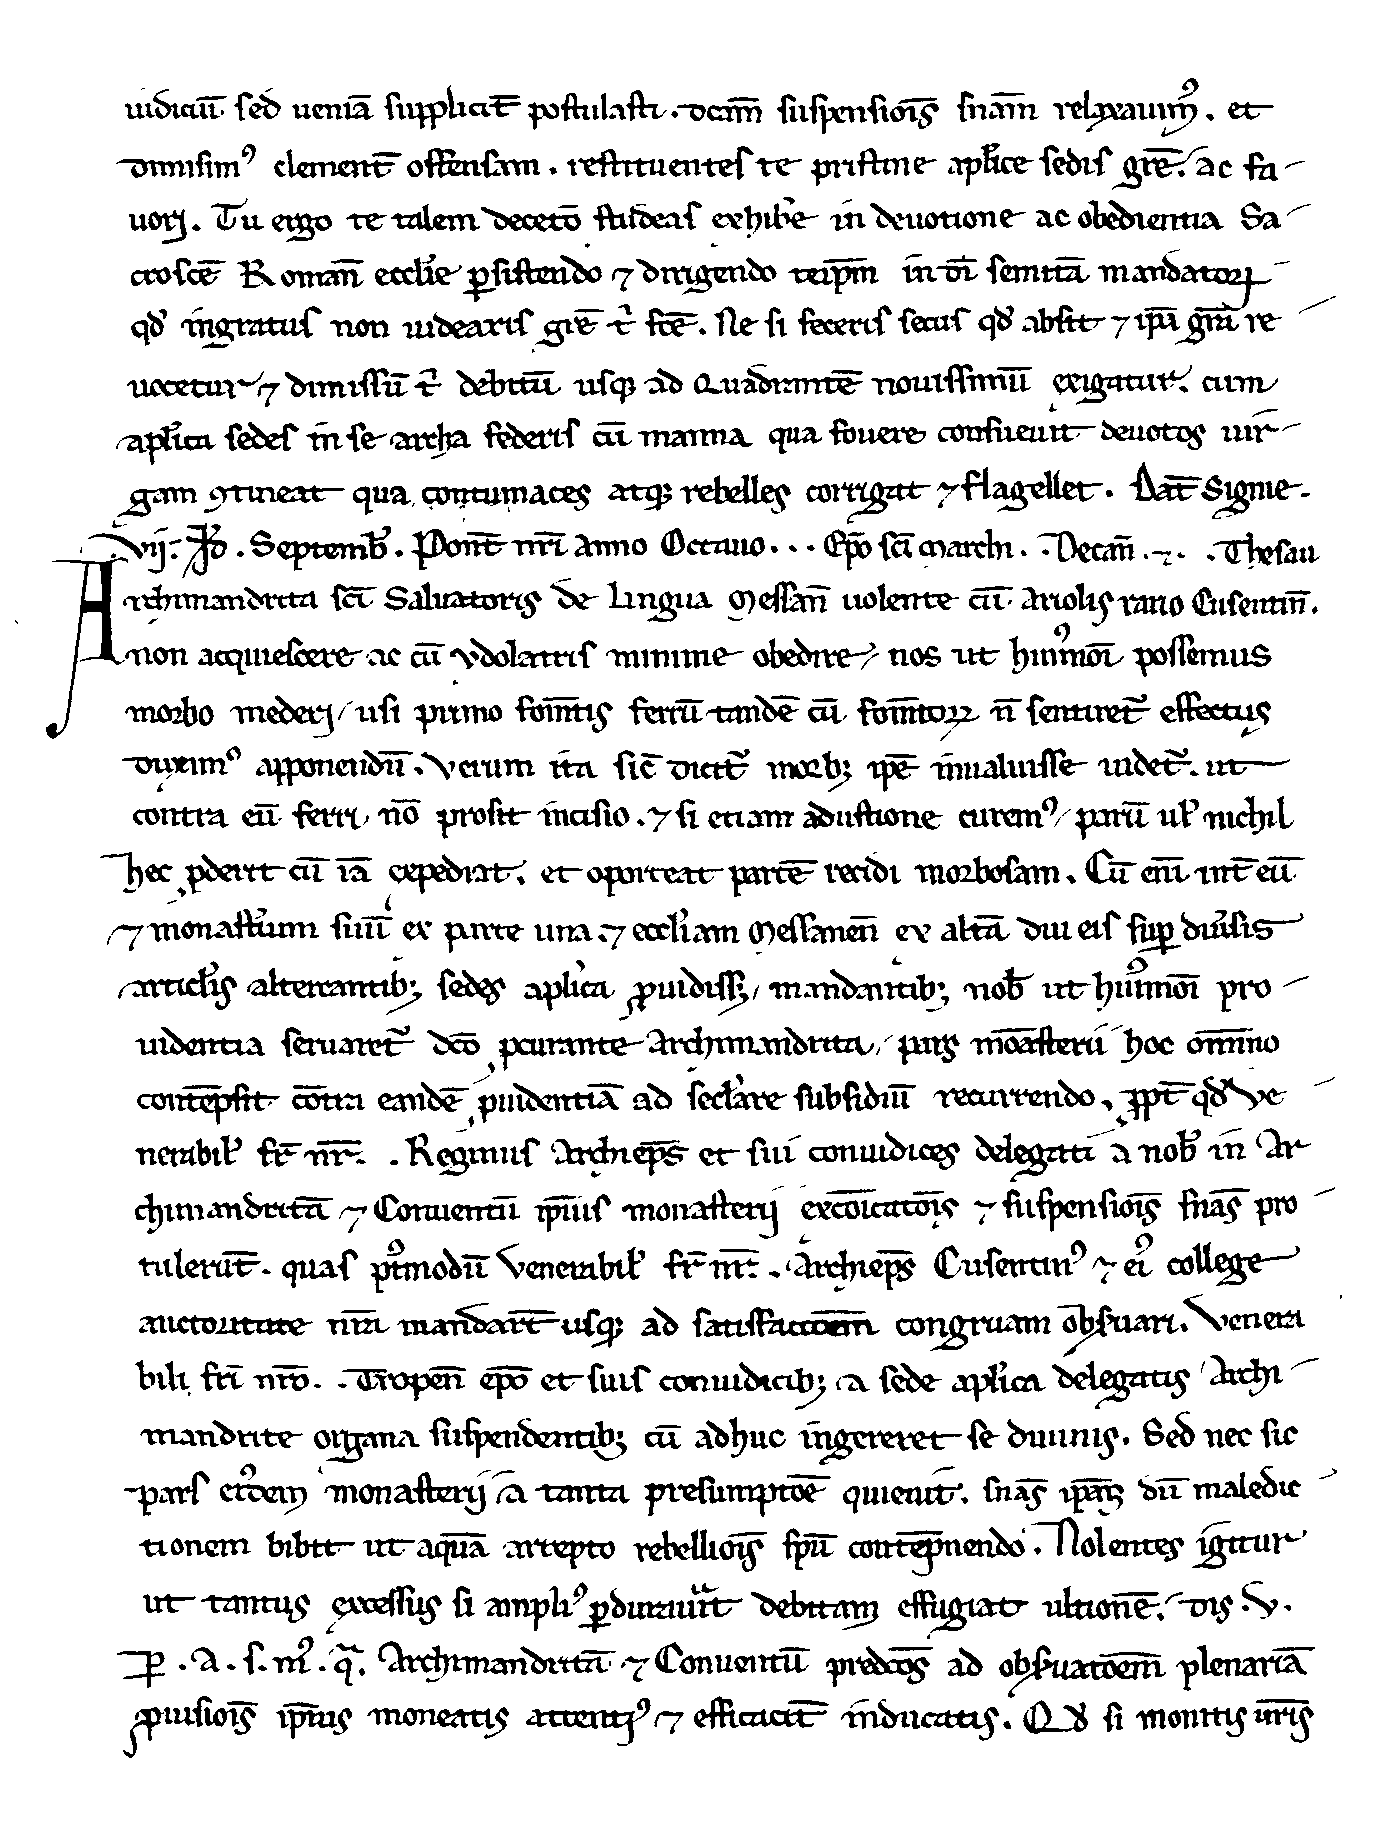 iudiciū sed ueniā suppliciť postulasti. dcām suspensiōis snām relaxauimꝰ. et
dimisimꝰ clementť offensam. restituentes te pristine aplice sedis grē. ac fa-
uori. Tu ergo te talem decetō studeas exhibe in deuotione ac obedientia Sa-
crosce Roman ecclie ꝑsistendo ⁊ dirigendo teipm in oi semita mandatoꝝ
qd ingratus non uidearis grē t fcē. Ne si feceris secus qd absit ⁊ ipā grā re-
uocetur ⁊ dimissū t debitū usqꝫ ad Quadrantē nouissimū exigatur. cum
aplica sedes in se archa federis cū manna qua fouere consueuit deuotos uir-
gam ꝯtineat qua contumaces atqꝫ rebelles corrigat ⁊ flagellet. Dat Signie.
vij. Id. Septemb. Pont nri Anno Octauo... Epo sci Marchi. .Decan. ⁊. .Thesau
Archimandrita sci Saluatoris de Lingua Messan uolente cū Ariolis rano Cusentin.
non acquiescere ac cū ydolatris minime obedire/ nos ut huiꝰmoi possemus
morbo mederi/ usi primo fomtis ferrū tandē cū fomtoꝝ n sentiret effectus
duximꝰ apponendū. Verum ita sic dicit morbꝫ ipe inualuisse uidet. ut
contra eū ferri nō prosit incisio. ⁊ si etiam adustione curemꝰ/ parū ul nichil
hec ꝓderit cū iā cepedirat. et oporteat partē recidi morbosam. Cū eni int eū
⁊ monastium suū ex parte una. ⁊ eccliam Messanen ex alta dui eis suꝑ diuisis
articlis altercantibꝫ sedes aplica ꝓuidissꝫ/ mandantibꝫ nob ut huiꝰmoi pro-
uidentia seruaret dco ꝓcurante Archimandrita/ pars moasterii hoc omino
contēpsit cōtra eandē ꝓuidentiā ad seclare subsidiū recurrendo. ꝓpt qd Ve-
nerabil fr nr. .Reginus Archieps et sui coniudices delegati a nob in Ar-
chimandritā ⁊ Conuentū ipius monasterij excoicatōis ⁊ suspensiōis snas pro-
tulerūt. quas pꝰtmodū Venerabil fr nr. .Archieps Cusentinꝰ ⁊ eiꝰ college
auctoritate nra mandart usqꝫ ad satisfactōem congruam obseruari. Venera-
bili fri nro. .Tropen epo et suis coniudicibꝫ a sede aplica delegatis Archi-
mandrite organa suspendentibꝫ cū adhuc ingereret se diuinis. Sed nec sic
pars eiꝰdem monasterij a tanta presumptōe quieuit. snas ipas dū maledic-
tionem bibit ut aquā arrepto rebelliōis spū contēpnendo. Nolentes igitur
ut tantus excessus si ampliꝰ ꝑdurauit debitam effugiat ultionē. dis. V.
ꝑ. A. s. mꝰ. q. Archimandritā ⁊ Conuentū predcōs ad obseruatōem plenariā
ꝓuisiōis ipius moneatis attentiꝰ ⁊ efficacit inducatis. Qd si monitis uris